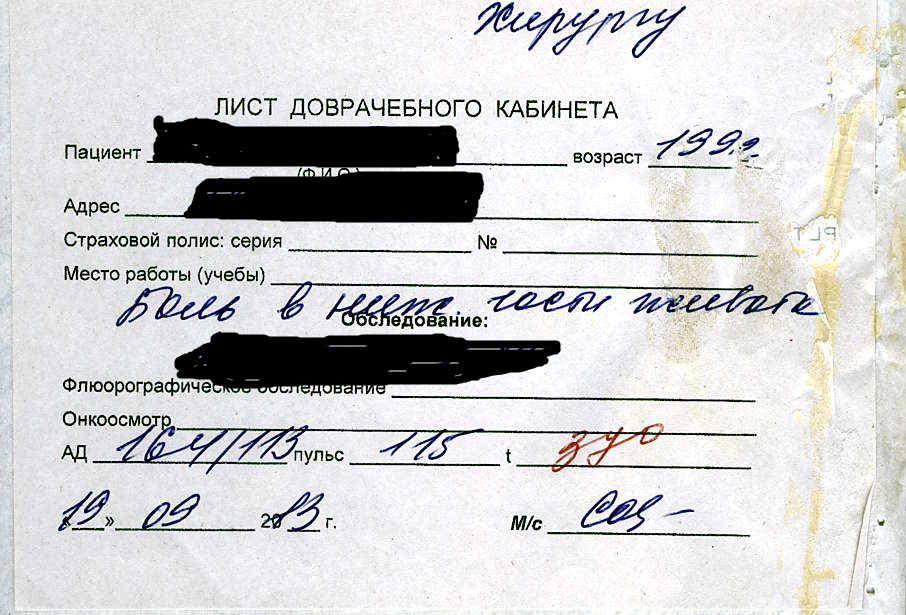 Хирургу
ЛИСТ ДОВРАЧЕБНОГО КАБИНЕТА
Пациент возраст 199
(Ф.И.О.)
Адрес
Страховой полис: серия №
Место работы (учебы)
Боль в нижн. части живота
Обследование:
Флюорографическое обследование
Онкоосмотр
АД 164/113 пульс 115 t
«19» 09 2013 г.
М/с